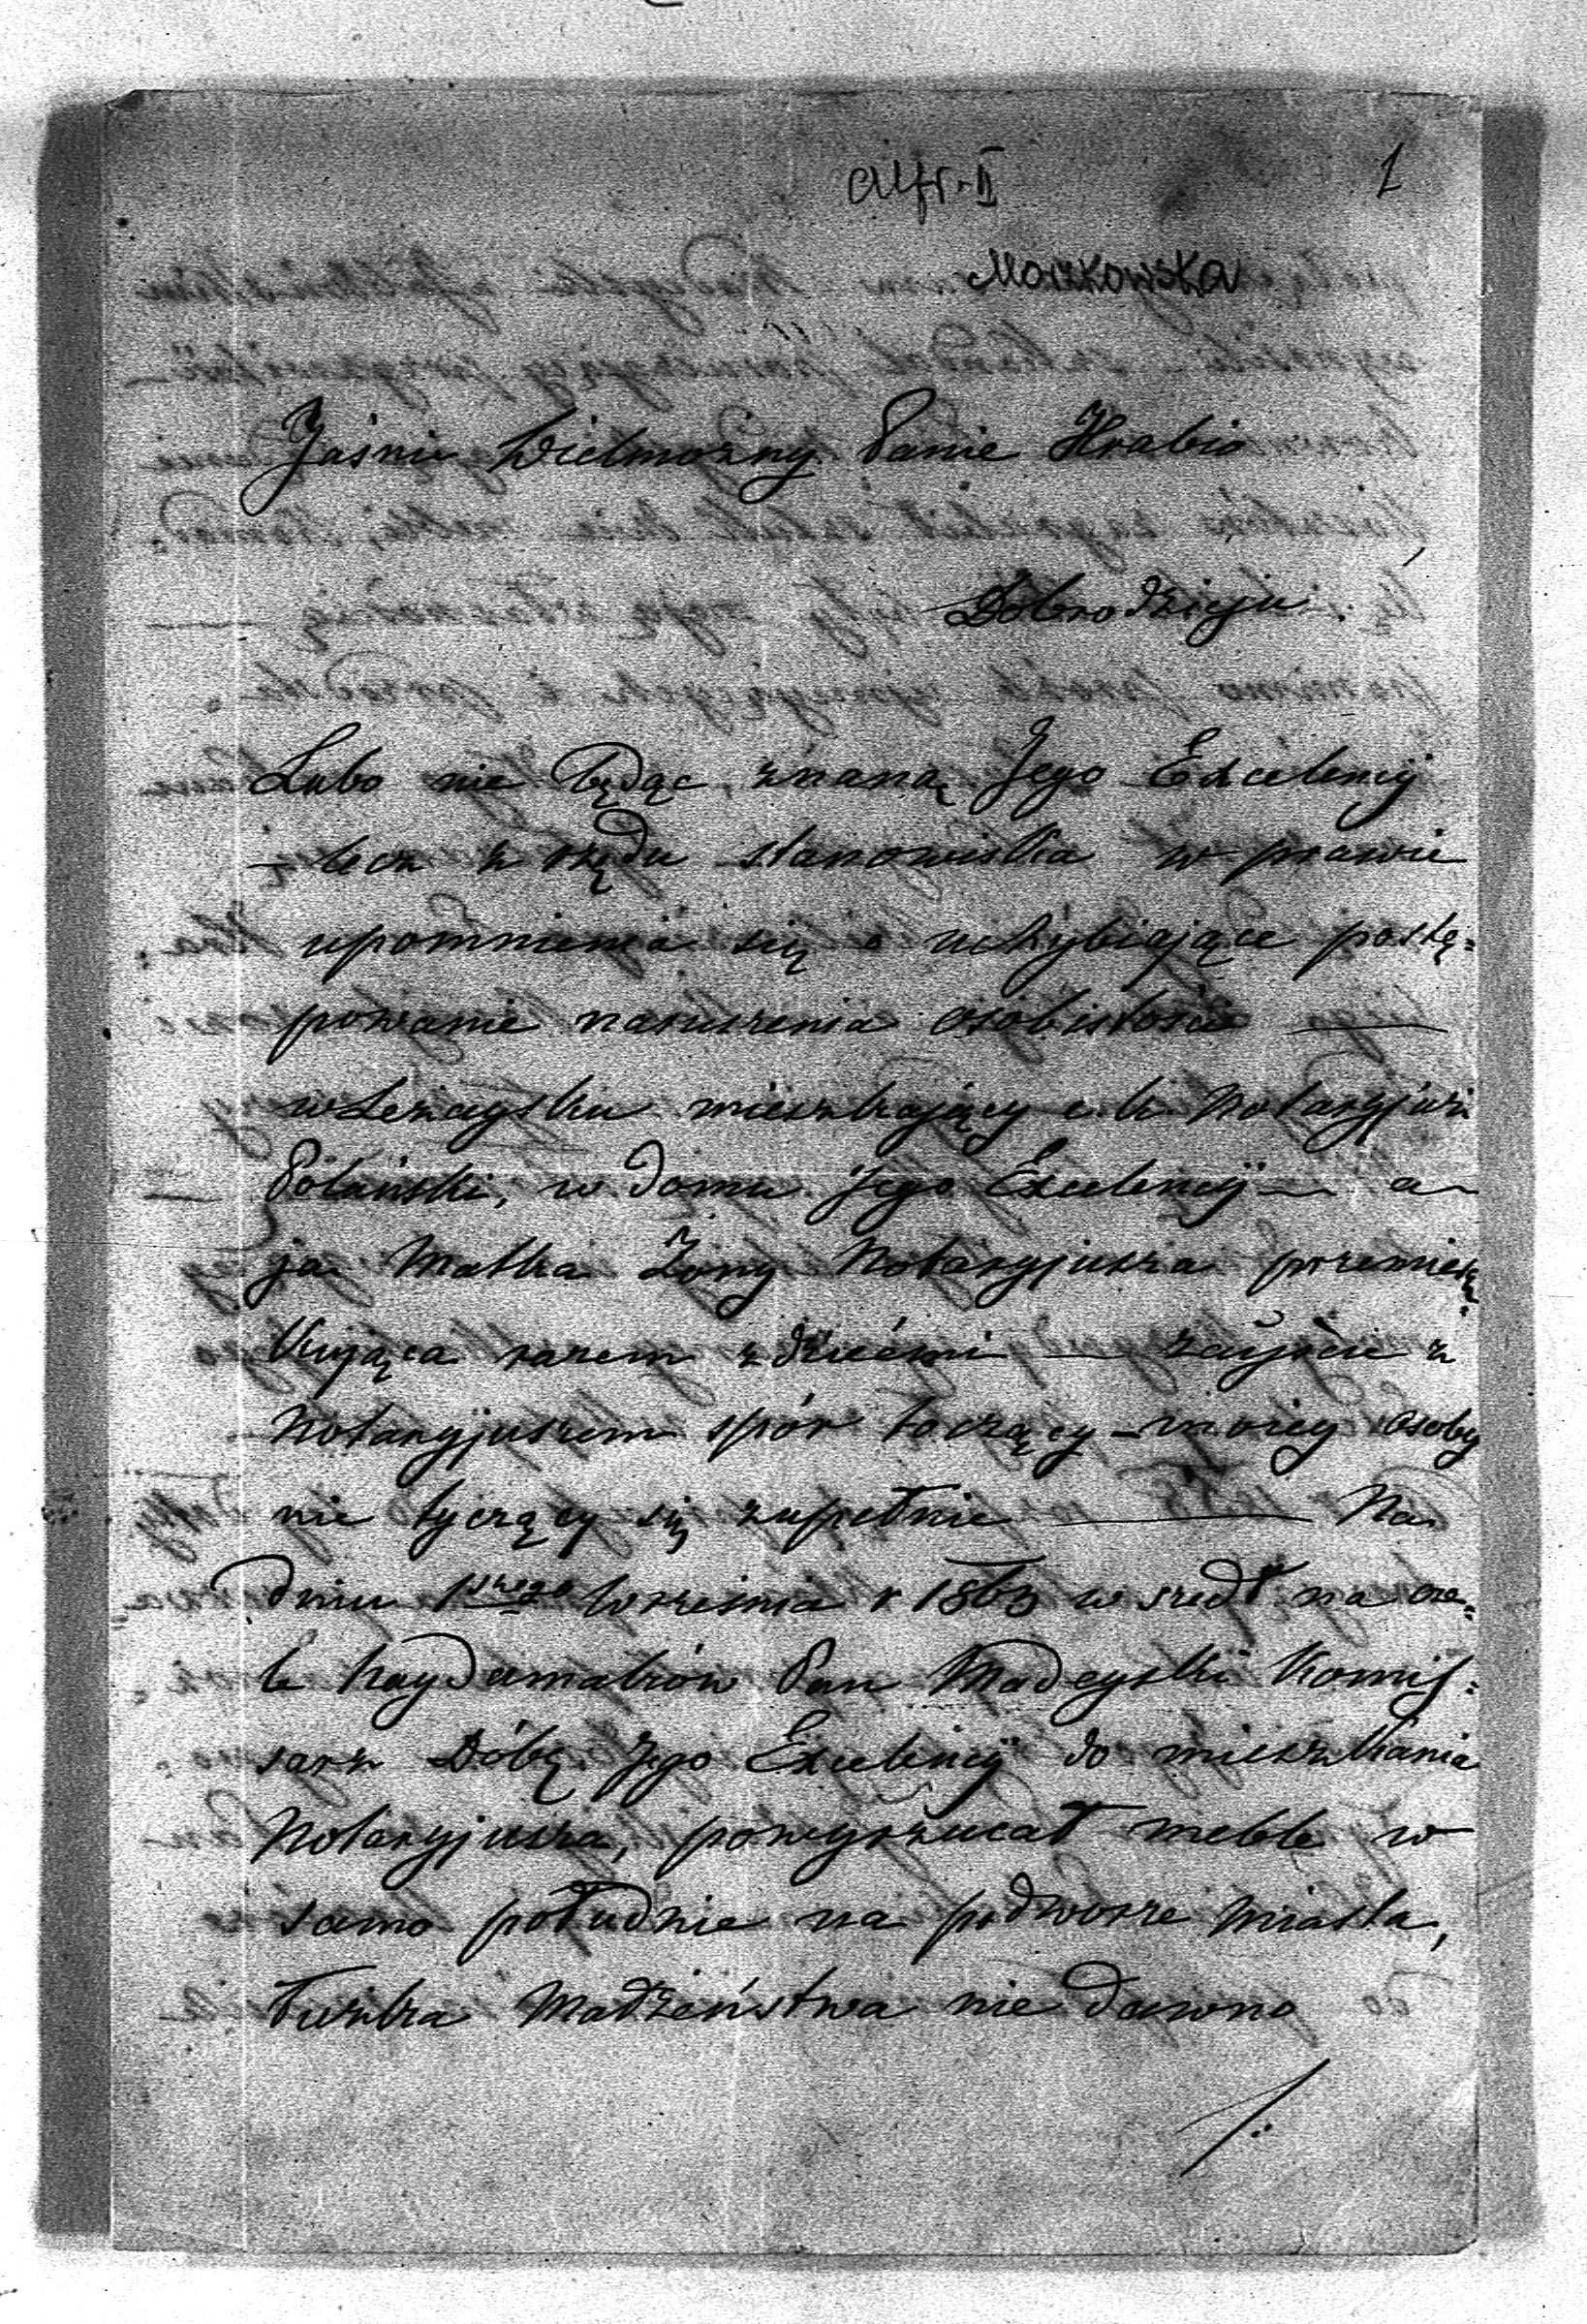 Alfr. II
1
Moszkowska
Jaśnie Wielmożny Panie Hrabio
Dobrodzieju!
Lubo nie będąc znaną Jego Excelencyi
– lecz z rzędu stanowiska w prawie
upomnienia się o uchybiające postę=
powanie naruszenia osobistości —
w Leżaysku mieszkający c. k. Notaryjusz
Polański, w domu Jego Excelencyi — a
ja Matka Żony Notaryjusza pomiesz=
kująca razem z dziećmi — zajście z
Notaryjuszem spór toczący – mojej osoby
nie tyczący się zupełnie — Na
dniu 1szego Września r 1863 wszedł na cze=
le haydamaków Pan Madeyski Komis=
sarz Dóbr Jego Excelencyi do mieszkania
Notaryjusza, powyrzucał meble w
samo południe na podworze miasta,
Łuzka Madżeństwa nie dawno